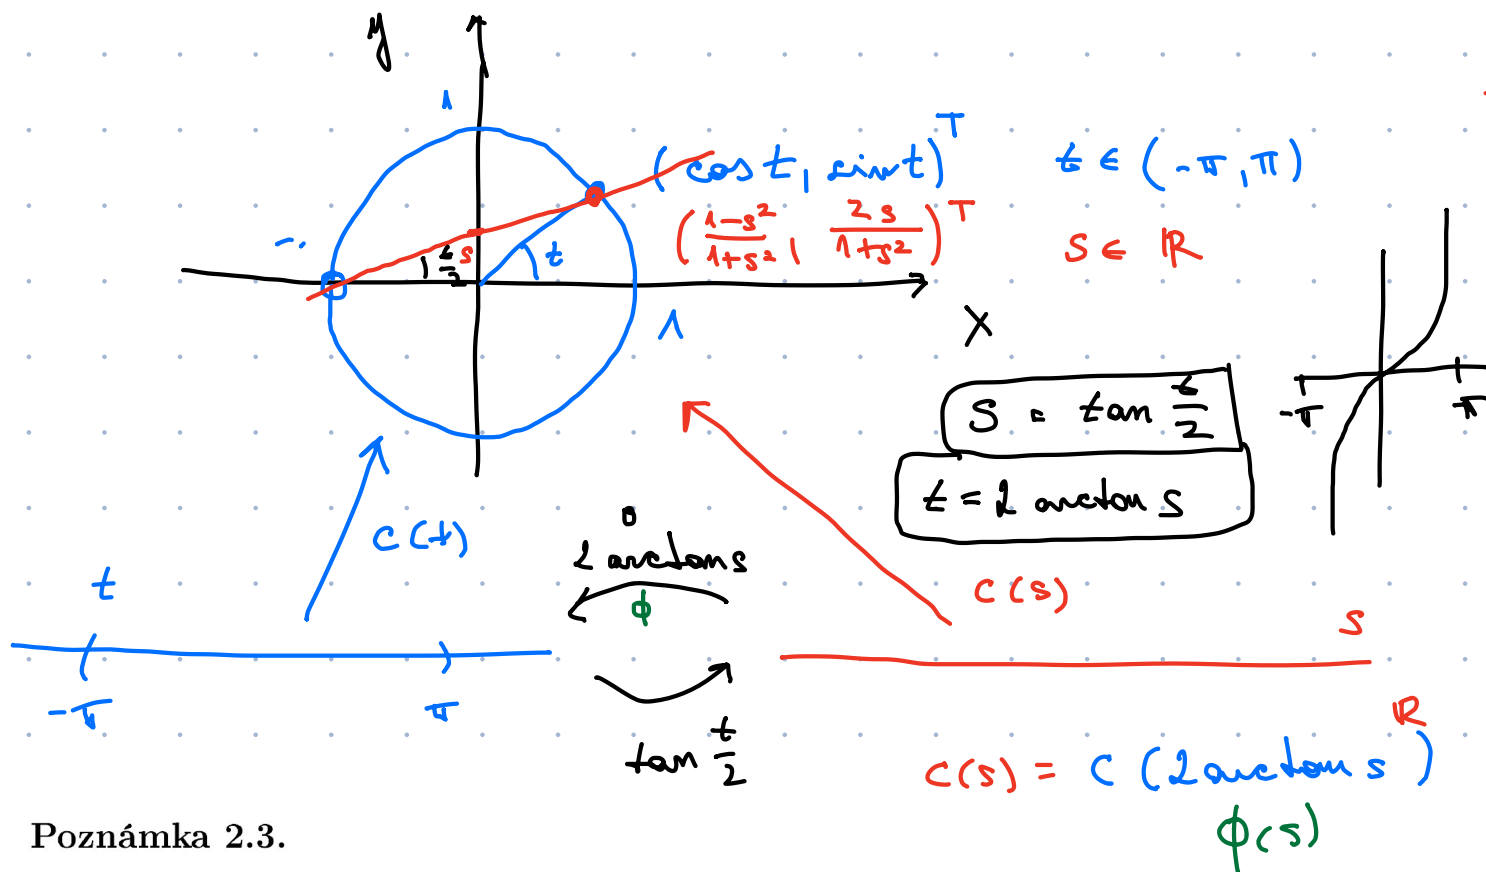 y
1
(cos t, sin t)^T t ∈ (-π, π)
((1-s²)/(1+s²), 2s/(1+s²))^T s ∈ ℝ
t/2 s t
1
x
s = tan t/2
-π π
t = 2 arctan s
c(t)
2 arctan s
ϕ
c(s)
t
s
-π π
tan t/2
ℝ
c(s) = c(2 arctan s)
ϕ(s)
Poznámka 2.3.